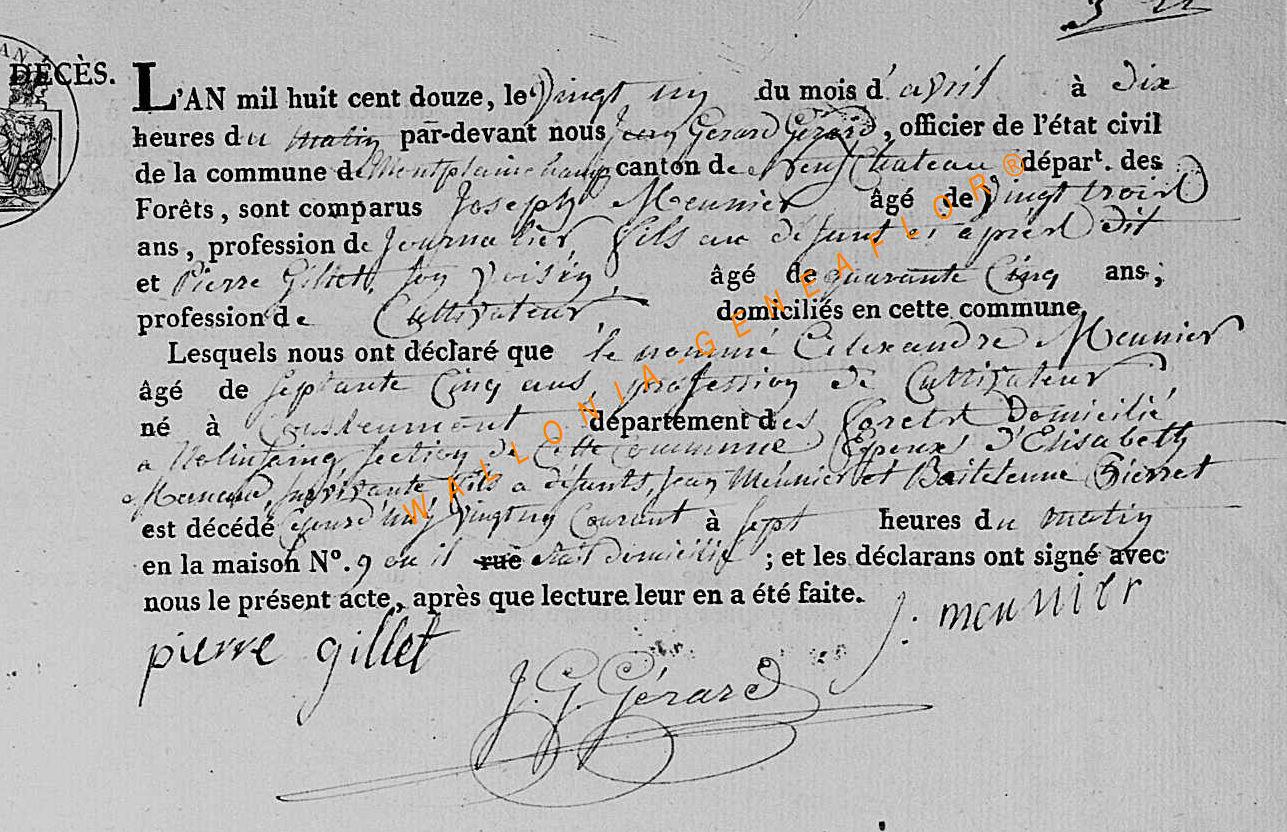 DÉCÈS.
L'AN mil huit cent douze, le Vingt un du mois d'avril à dix
heures du matin par-devant nous Jean Gerard Gérard, officier de l'état civil
de la commune de Montplainchamp canton de Neufchateau départ. des
Forêts, sont comparus Joseph Meunier âgé de Vingt trois
ans, profession de Journalier, fils au défunt ci après dit
et Pierre Gillet, son Voisin, âgé de quarante Cinq ans,
profession de Cultivateur, domiciliés en cette commune
Lesquels nous ont déclaré que le nommé Alexandre Meunier
âgé de septante Cinq ans, profession de Cultivateur
né à département des Forets Domicilié
a section de Cette Commune Epoux d'Elisabeth
survivante, fils a défunts, Jean Meunier et Pierret
est décédé Vingt un Courant à sept heures du matin
en la maison N°. 9 ou il rue était domicilié ; et les déclarans ont signé avec
nous le présent acte, après que lecture leur en a été faite.
pierre gillet J: meunier
J. G. Gérard
WALLONIA-GENEAFLOR®